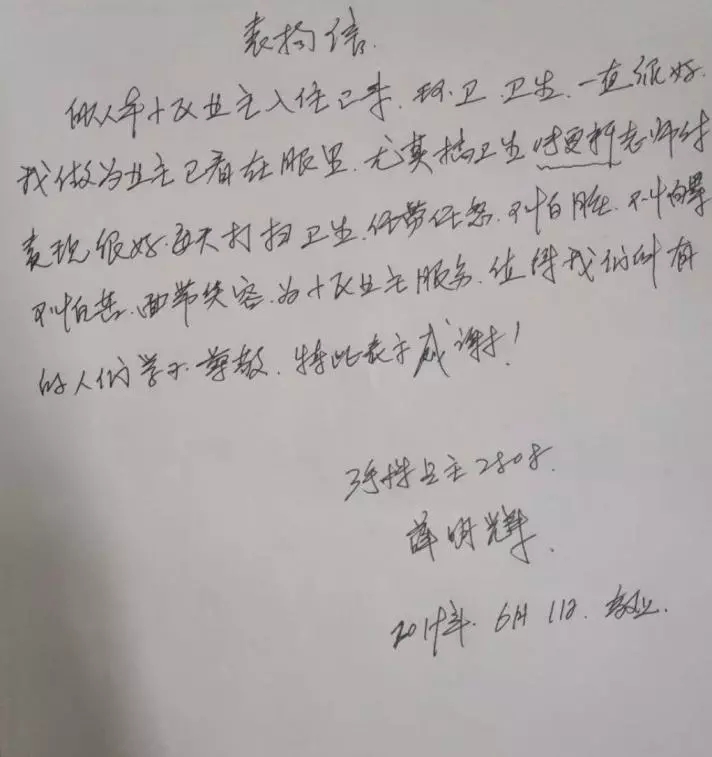 表扬信.
从今年小区业主入住已来,环卫.卫生.一直很好.
我做为业主已看在眼里.尤其搞卫生 师付
表现很好.每天打扫卫生.任劳任怨.不怕脏.不怕累
不怕苦.面带笑容.为小区业主服务.值得我们所有
的人们学习.尊敬.特此表示感谢!
3号楼业主2808.
薛明辉.
2019年.6月11日.敬上.